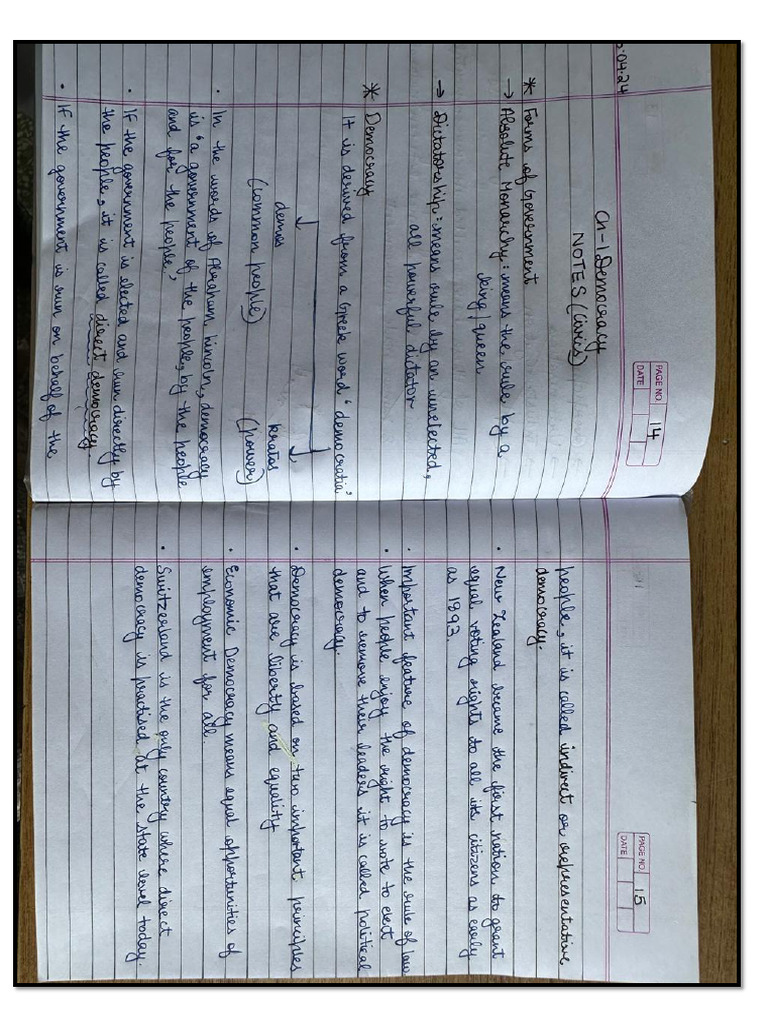 PAGE NO. 14
DATE
:04.24
Ch-1 Democracy
NOTES (Civics)
* Forms of Government
→ Absolute Monarchy : means the rule by a
king/queen
→ Dictatorship : means rule by an unelected,
all powerful dictator
* Democracy
It is derived from a Greek word "democratia"
demos kratos
(common people) (power)
• In the words of Abraham Lincoln, democracy
is "a government of the people, by the people
and for the people,"
• If the government is elected and run directly by
the people, it is called direct democracy
• If the government is run on behalf of the
PAGE NO. 15
DATE
people, it is called indirect or representative
democracy.
• New Zealand became the first nation to grant
equal voting rights to all its citizens as early
as 1893.
• Important feature of democracy is the rule of law
• When people enjoy the right to vote to elect
and to remove their leaders it is called political
democracy.
• Democracy is based on two important principles
that are liberty and equality
• Economic Democracy means equal opportunities of
employment for all.
• Switzerland is the only country where direct
democracy is practised at the state level today.